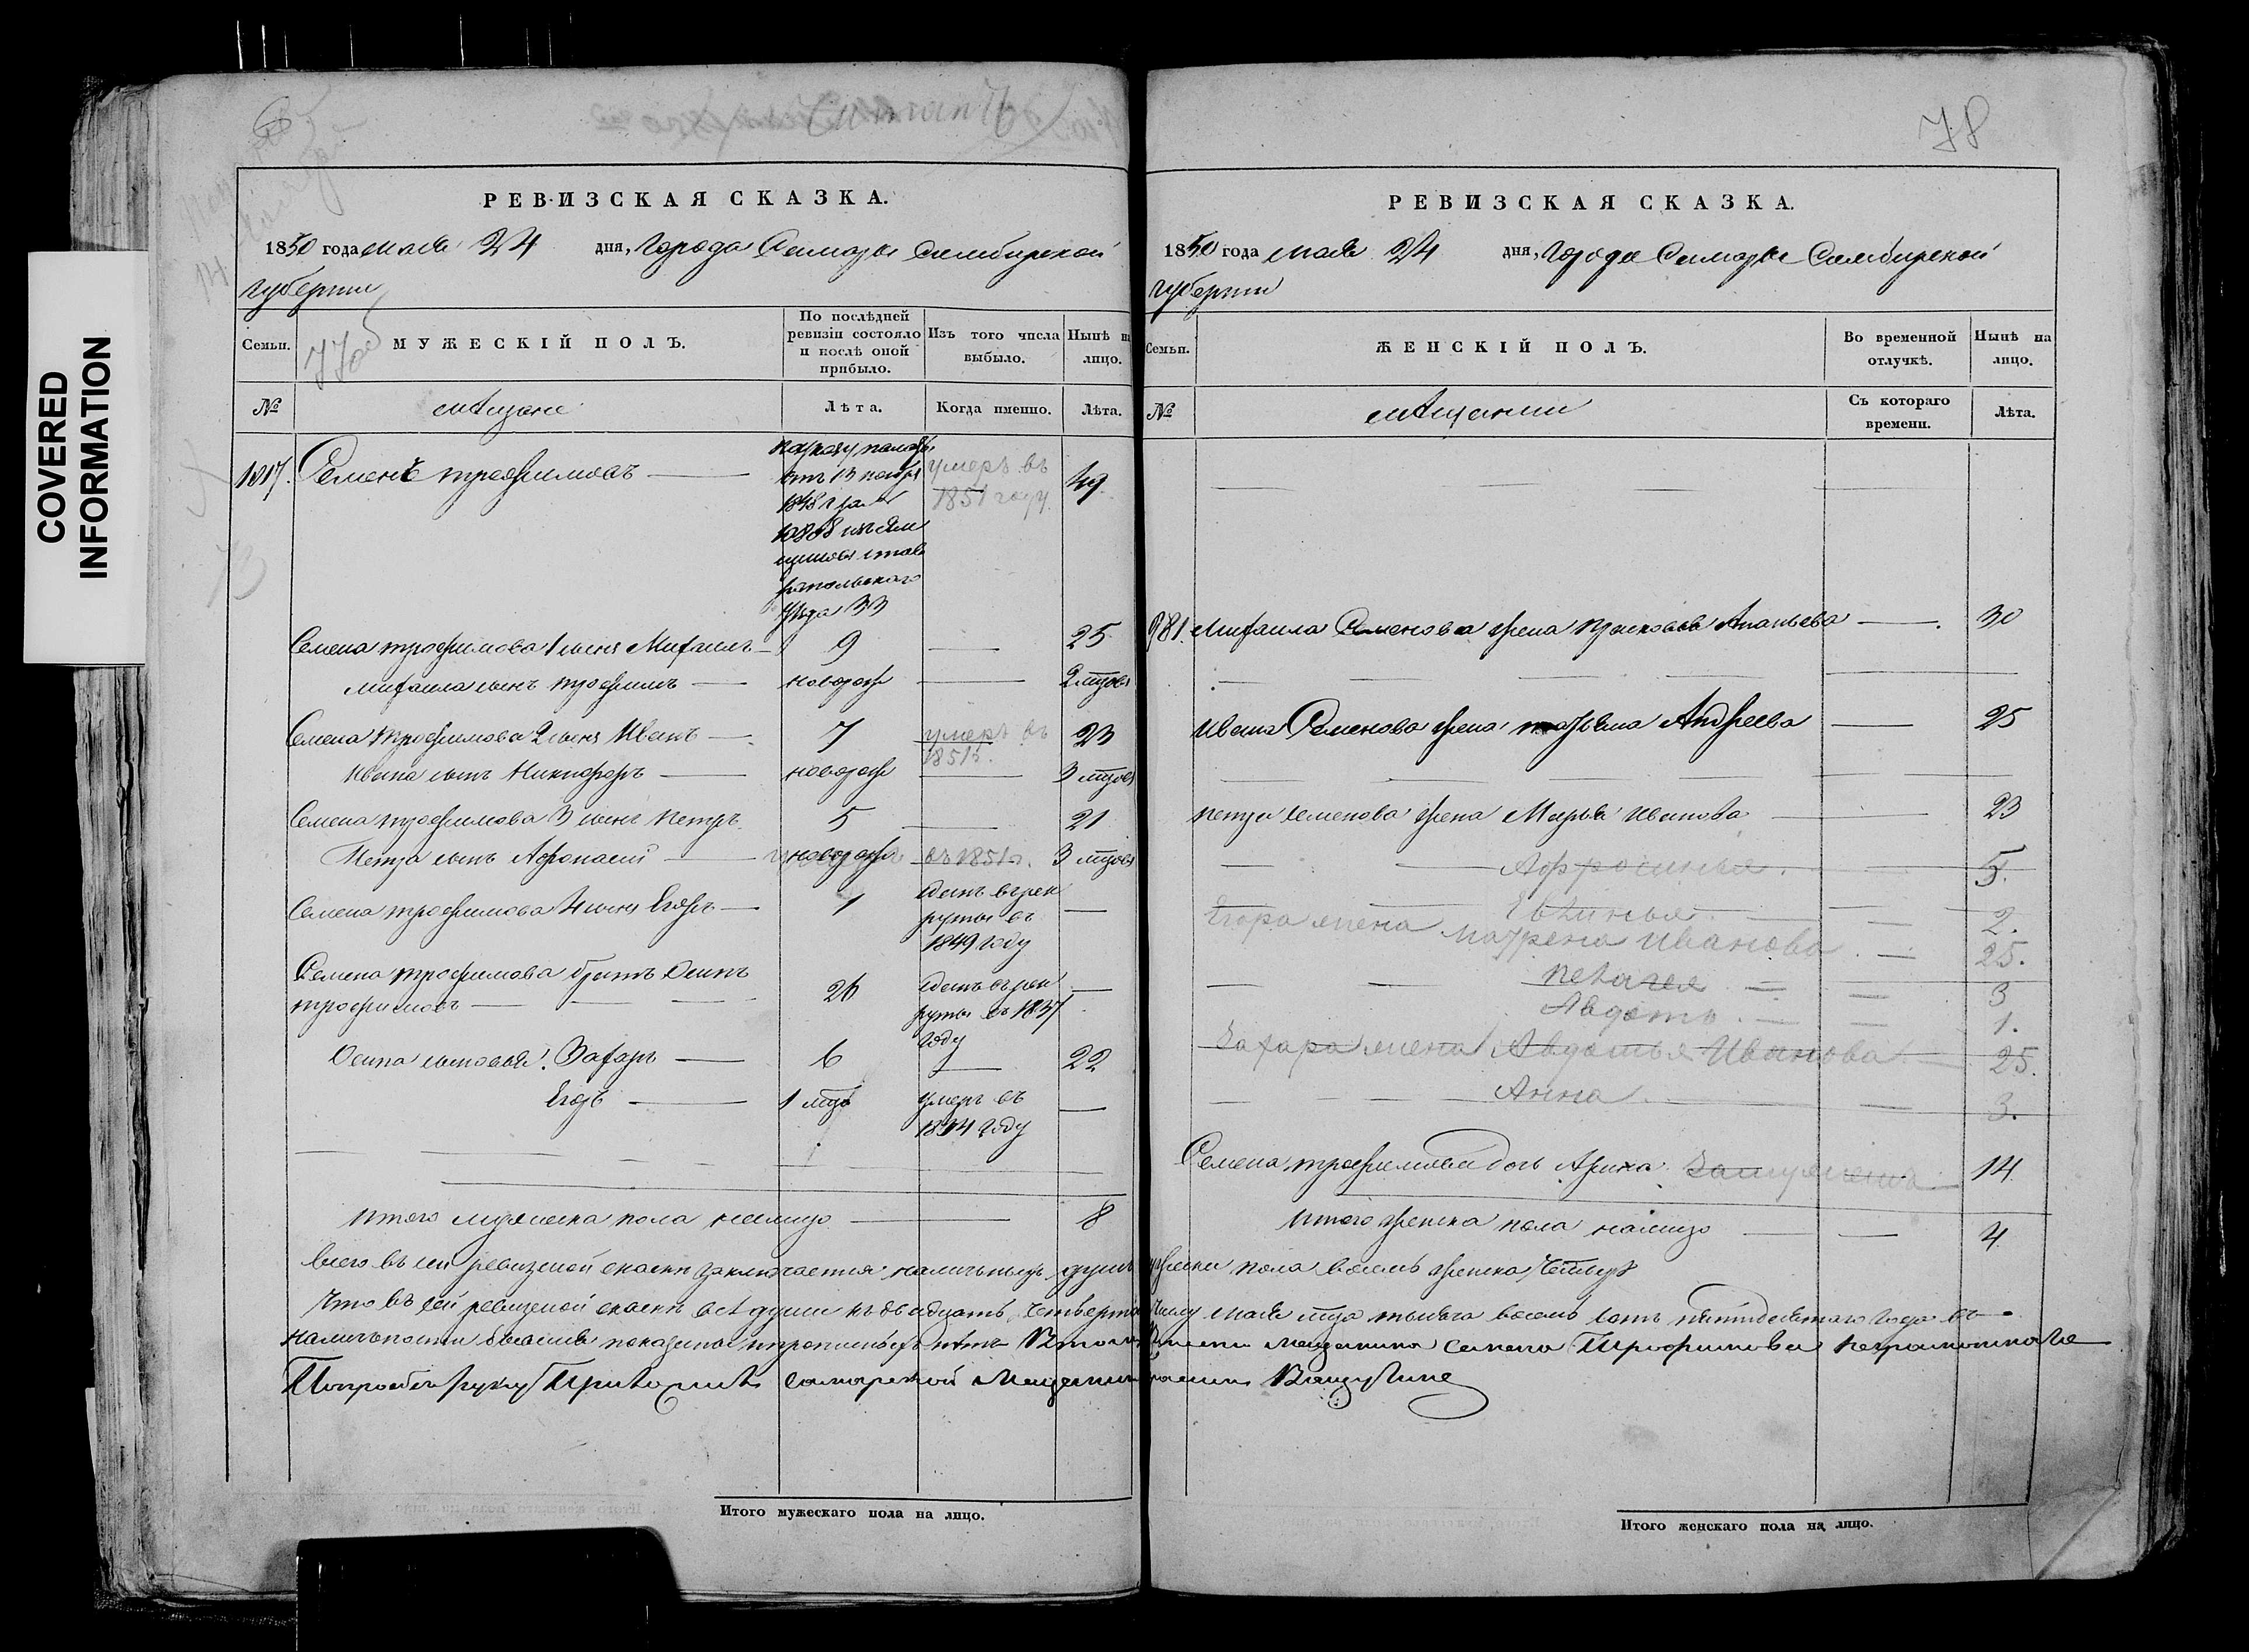 COVERED
INFORMATION
78
РЕВИЗСКАЯ СКАЗКА.
1850 года мая 24 дня, Города Самары Симбирской
губернии
Семьи.
МУЖЕСКІЙ ПОЛЪ.
По послѣдней
ревизіи состояло
и послѣ оной
прибыло.
Изъ того числа
выбыло.
Нынѣ на
лицо.
№
мѣщане
Лѣта.
Когда именно.
Лѣта.
Семенъ трофимовъ
отъ 13 ноября
уѣзда 33
умеръ въ
1851 году
49
Семена трофимова 1 сынъ Михаилъ 9 25
Михаила сынъ трофимъ новорож 2 мцовъ
Семена трофимова 2 сынъ Иванъ 7 умеръ въ 23
1851г.
Ивана сынъ Никифоръ новорож 3 мцовъ
Семена трофимова 3 сынъ Петръ 5 21
Петра сынъ Афонасій новорож въ 1851г. 3 мцовъ
Семена трофимова 4 сынъ Егоръ 1 рек
руты въ
1849 году
Семена трофимова братъ Осипъ
трофимовъ 26 рек
руты въ 1837
году
Осипа сыновья: Захаръ 6 22
Егоръ 1 мца умеръ въ
1834 году
итого мужеска пола налицо 8
РЕВИЗСКАЯ СКАЗКА.
1850 года мая 24 дня, Города Самары Симбирской
губернии
Семьи.
ЖЕНСКІЙ ПОЛЪ.
Во временной
отлучкѣ.
Нынѣ на
лицо.
№
мѣщанки
Съ котораго
времени.
Лѣта.
981. Михаила Семенова жена Прасковья Ананьева 30
Ивана Семенова жена Татьяна Андреева 25
Петра Семенова жена Марья Иванова 23
Афросинья. 5.
Евгинья. 2.
Егора жена Матрена Иванова 25.
Пелагея 3
Авдотья 1.
Захара жена Авдотья Иванова 25.
Анна 3.
Семена трофимова дочь Арина замужемъ 14
итого женска пола налицо 4
Всего въ сей ревизской сказки заключается наличныхъ душъ мужска пола восемь женска четыре
Что въ сей ревизской сказкѣ всѣ души къ двадцать четвертому числу мая мца тысяча восемь сотъ пятидесятаго года въ
наличности бывшія показаны и прописныхъ нѣтъ мещанина Семена Трофимова неграмотнаго
Попрозбѣ руку Приложилъ Самарской Мещанинъ
Итого мужескаго пола на лицо.
Итого женскаго пола на лицо.